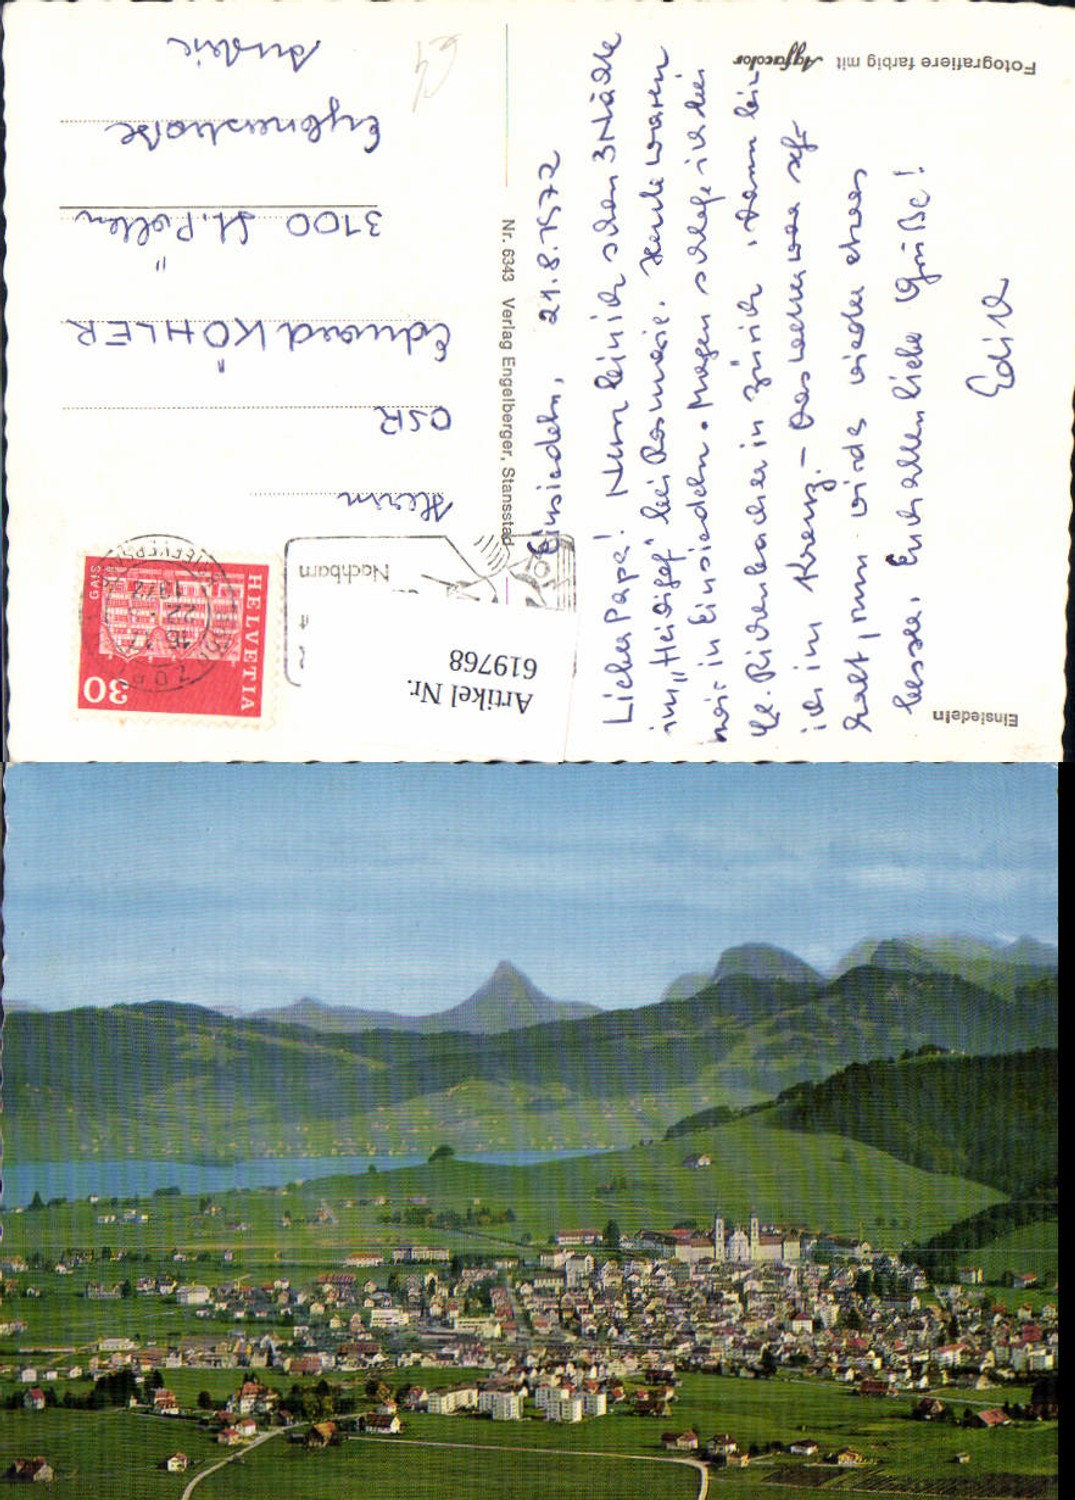 Einsiedeln
Fotografiere farbig mit Agfacolor
Nr. 6343 Verlag Engelberger, Stansstad
Einsiedeln, 21.8.1972
Lieber Papa! Nun bin ich schon 3 Nächte
im "Heidigef" bei Rosmarie. Heute waren
wir in Einsiedeln. Morgen schlafe ich bei
Richenbacher in Zürich, dann bin
ich im Kreuz. - Das Wetter war sehr
kalt, nun wird's wieder etwas
besser. Euch allen liebe Grüße!
Edith
HELVETIA
30
GAIS
22
1972
Nachbarn
Herrn
OSR
Eduard KÖHLER
3100 St. Pölten
Artikel Nr.
619768